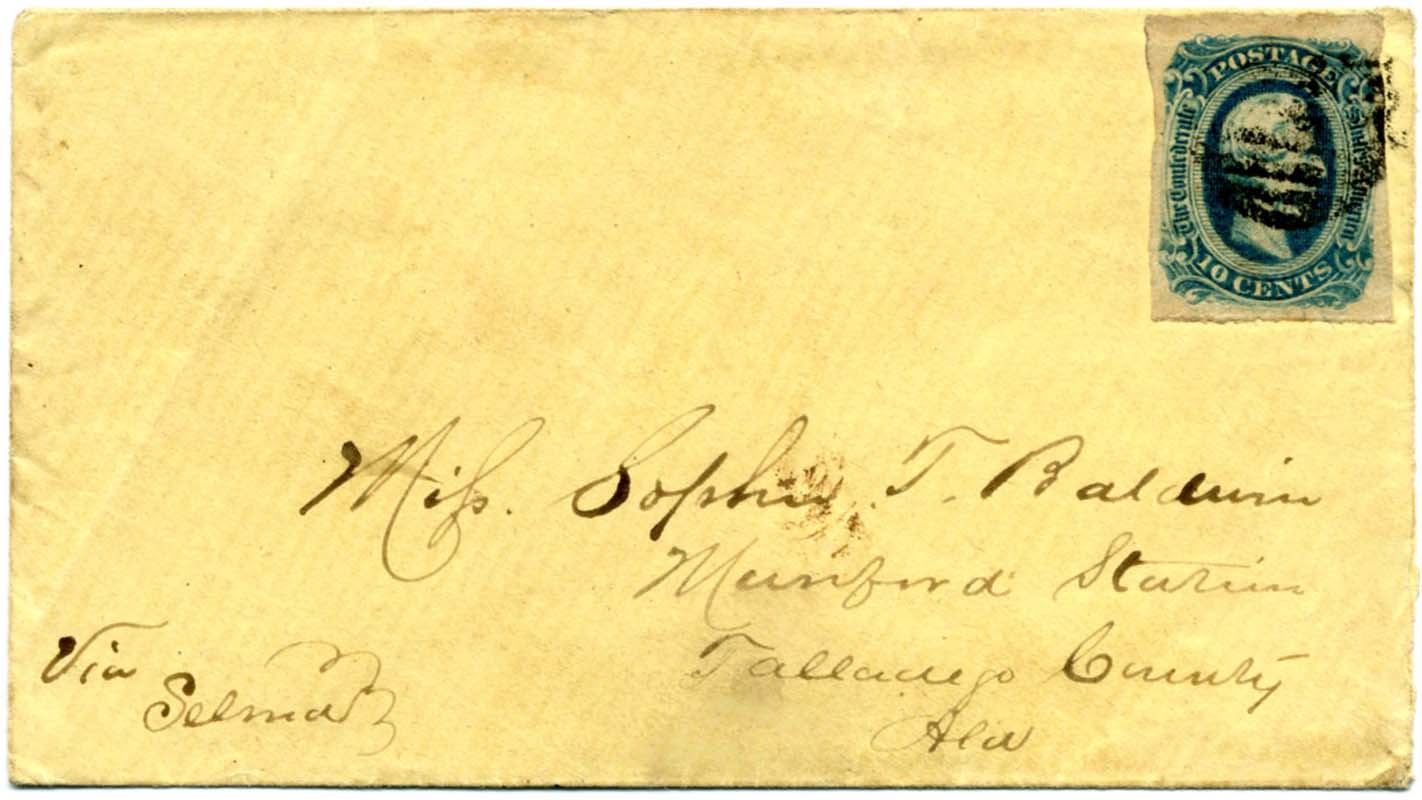 POSTAGE
The Confederate States of America
10 CENTS
Miss. Sophie T. Baldwin
Munford Station
Talladega County
Ala
Via
Selma